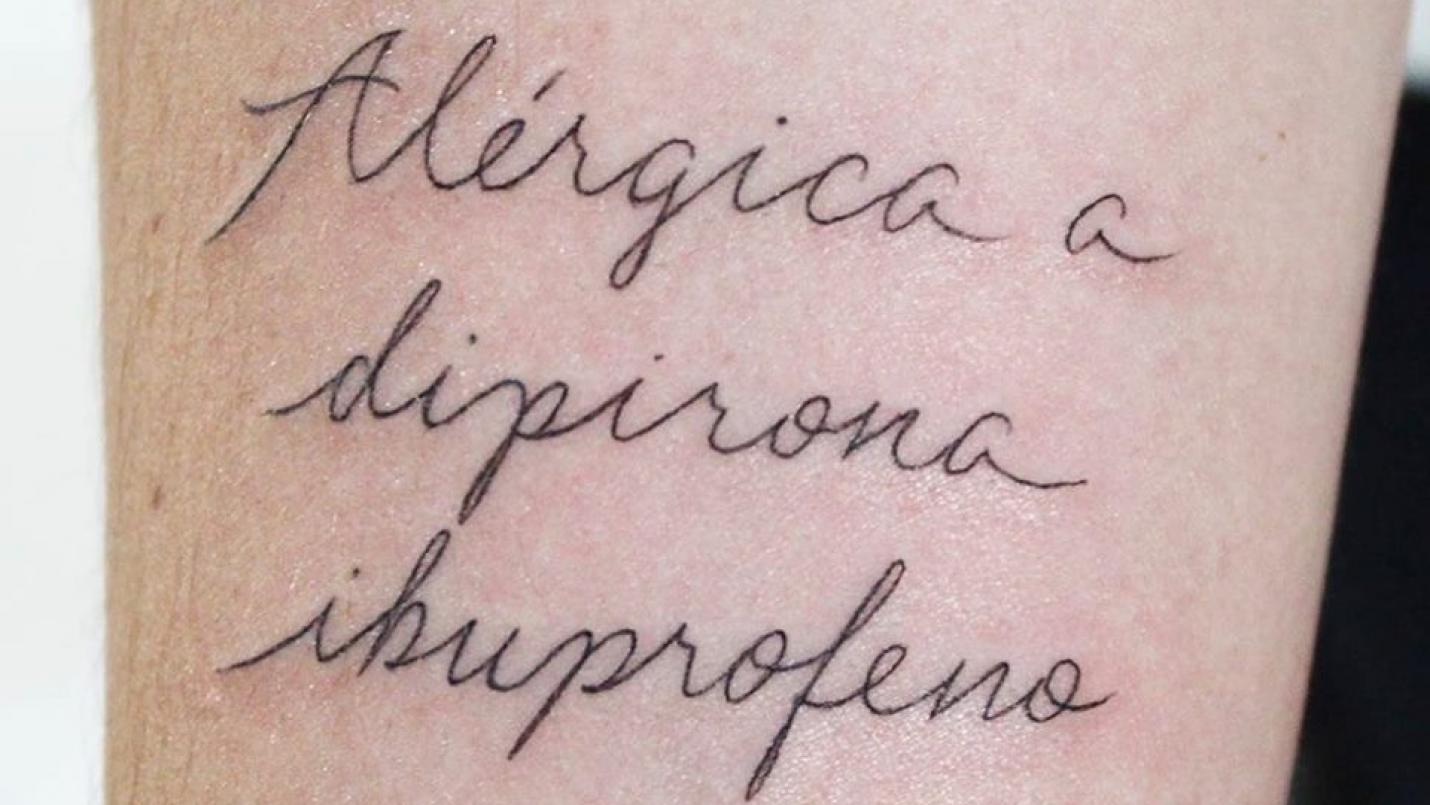 Alérgica a
dipirona
ibuprofeno